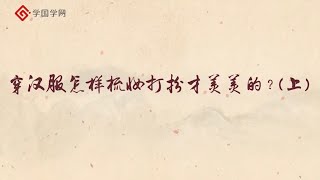 学国学网
穿汉服怎样梳妆打扮才美美的？(上)